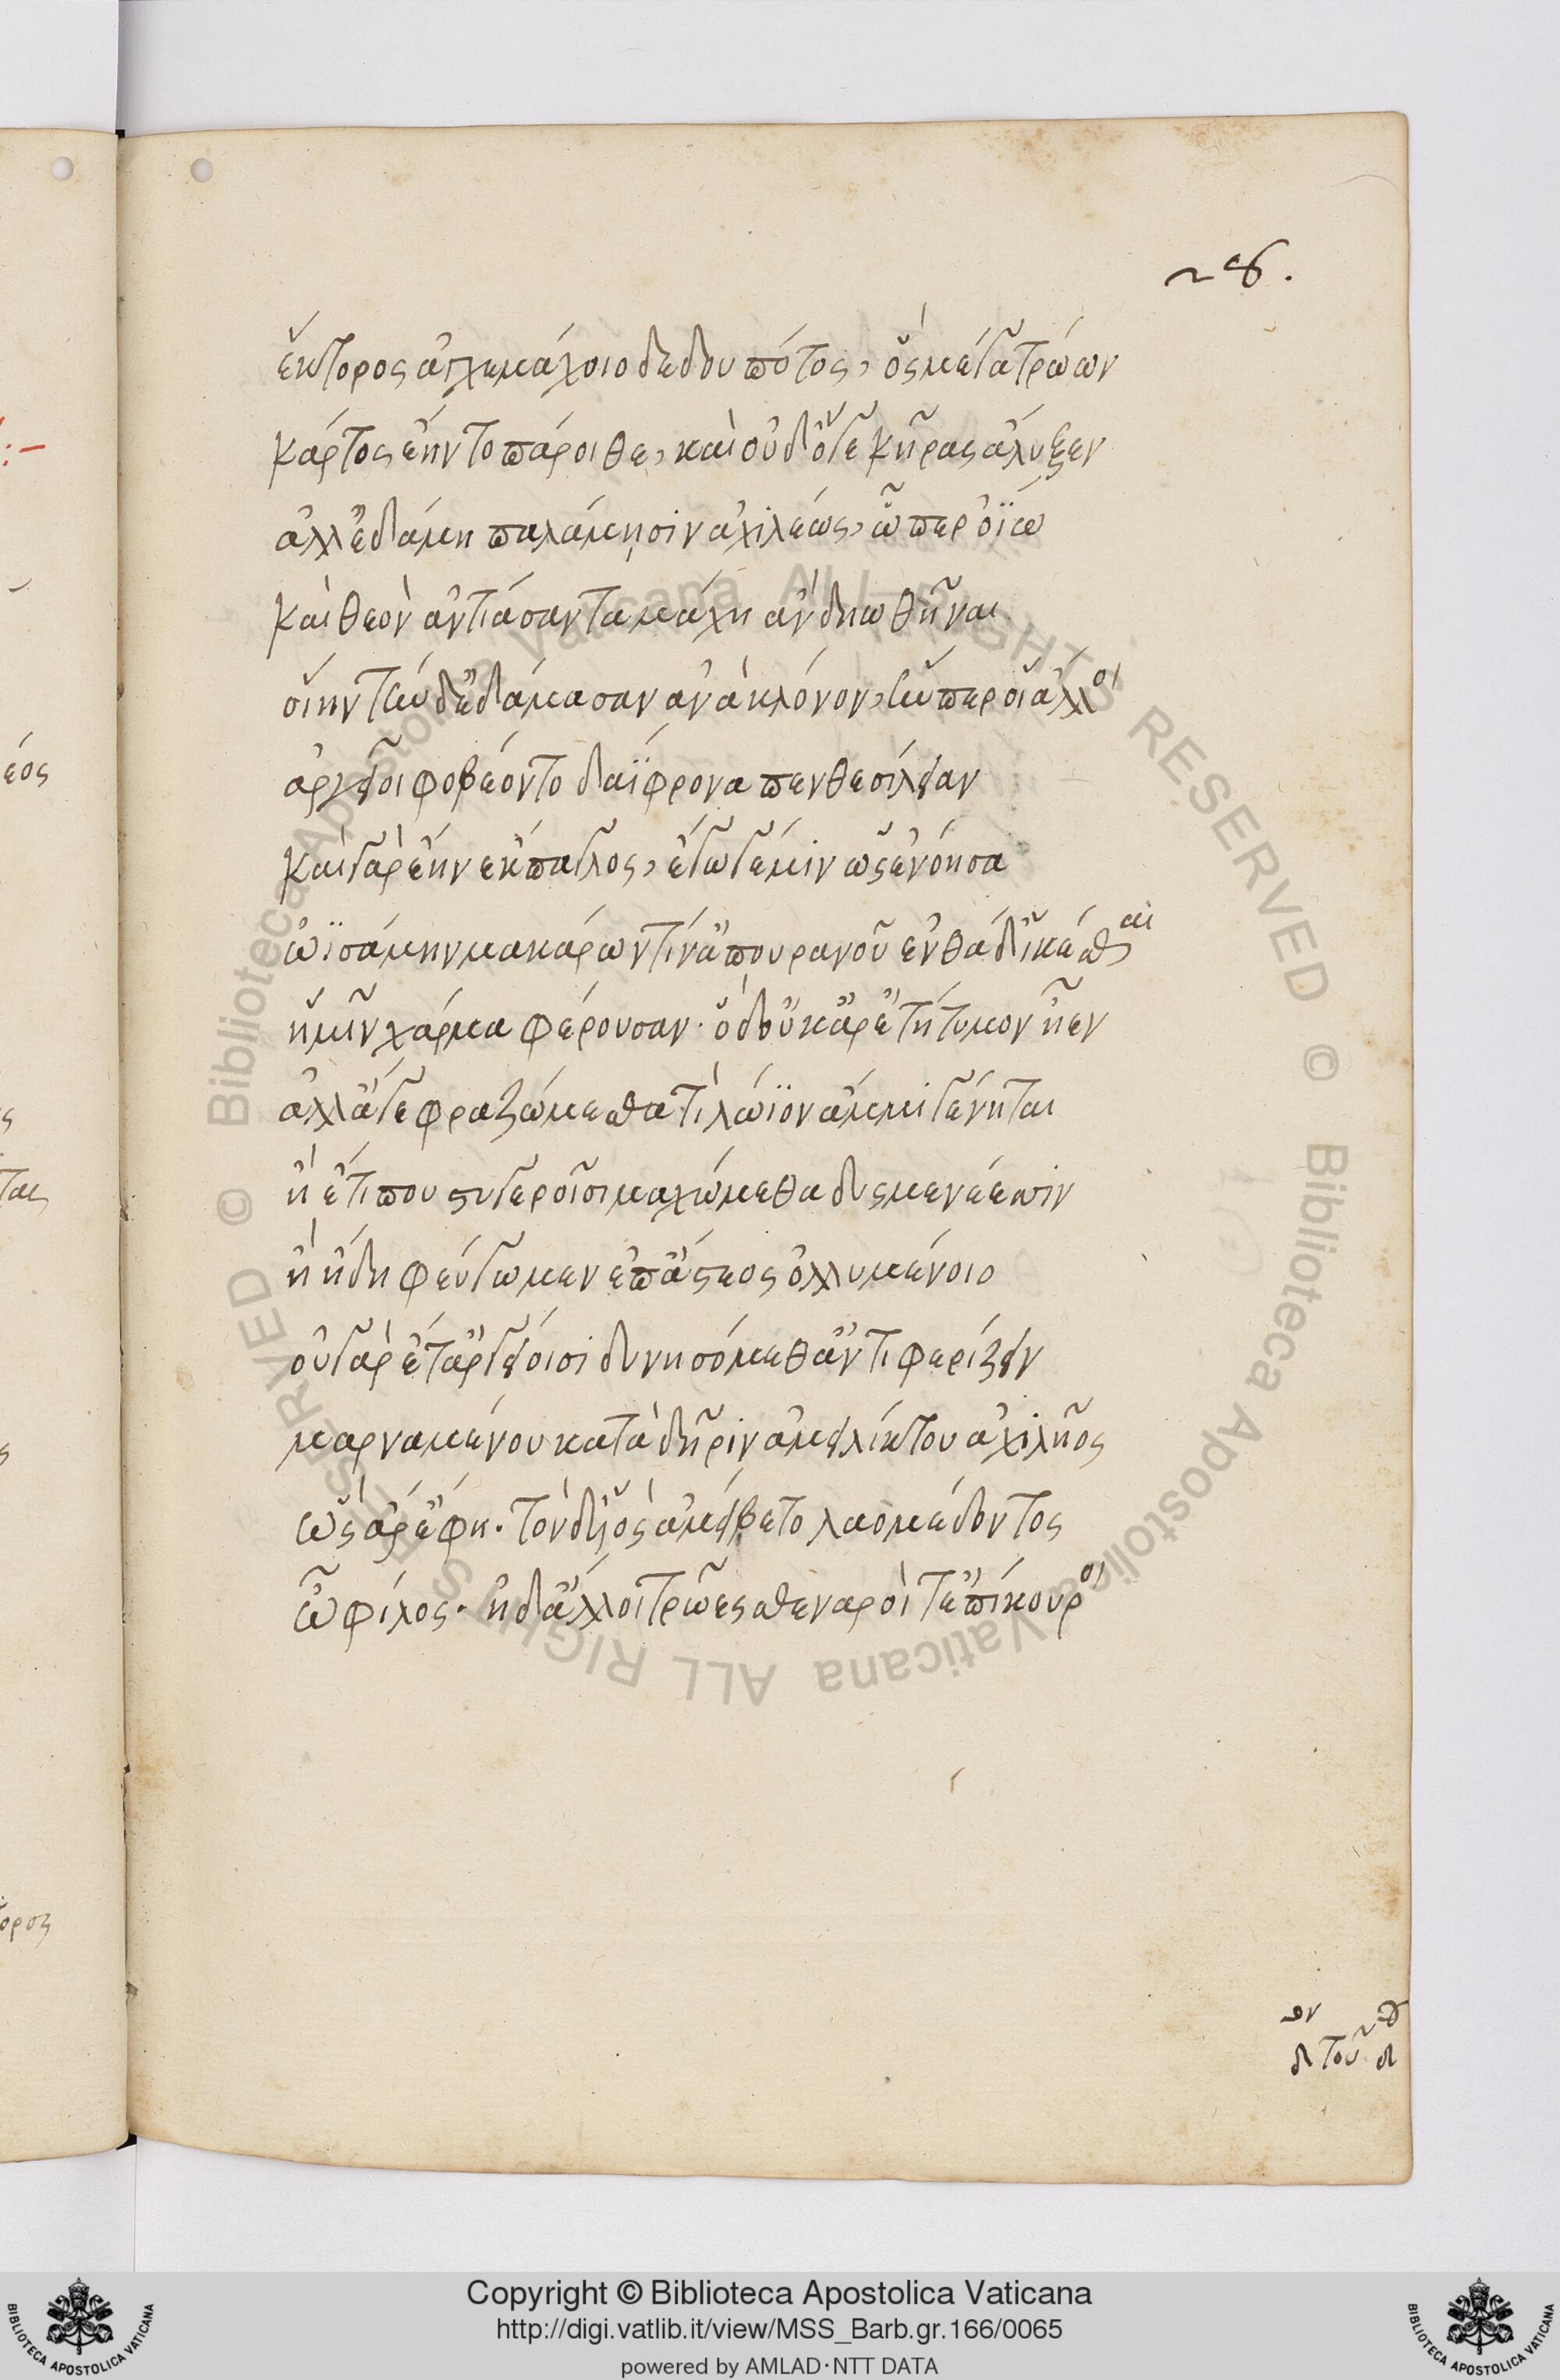 ἕκτορος ἀγχεμάχοιο δεδουπότος, ὃς μέγα τρώων
κάρτος ἔην τοπάροιθε, καὶ οὐδ' ὅγε κῆρας ἄλυξεν
ἀλλ' ἐδάμη παλάμῃσιν ἀχιλέως, ὧπερ ὀΐω
καὶ θεὸν ἀντιάσαντα μάχῃ ἂν δηωθῆναι
οἵην τήνδ' ἐδάμασσαν ἀνὰ κλόνον, ἥνπερ οἱ ἄλλοι
ἀργεῖοι φοβέοντο δαΐφρονα πενθεσίλειαν
καὶ γὰρ ἔην ἔκπαγλος, ἔγωγέ μιν ὡς ἐνόησα
ὠϊσάμην μακάρων τίν' ἀπ' οὐρανοῦ ἐνθάδ' ἱκέσθαι
ἡμῖν χάρμα φέρουσαν· ὁ δ' οὐκ ἄρ' ἐτήτυμον ἦεν
ἀλλ' ἄγε φραζώμεσθα τί λώϊον ἄμμι γένηται
ἢ ἔτι που στυγεροῖσι μαχώμεθα δυσμενέεσσιν
ἢ ἤδη φεύγωμεν ἐπ' ἄστεος ὀλλυμένοιο
οὐ γὰρ ἔτ' ἀργείοισι δυνησόμεθ' ἀντιφερίζειν
μαρναμένου κατὰ δῆριν ἀμειλίκτου ἀχιλῆος
ὣς ἄρ' ἔφη· τὸν δ' υἱὸς ἀμείβετο λαομέδοντος
ὦ φίλος· ἠδ' ἄλλοι τρῶες σθεναροί τ' ἐπίκουροι
Copyright © Biblioteca Apostolica Vaticana
http://digi.vatlib.it/view/MSS_Barb.gr.166/0065
powered by AMLAD·NTT DATA